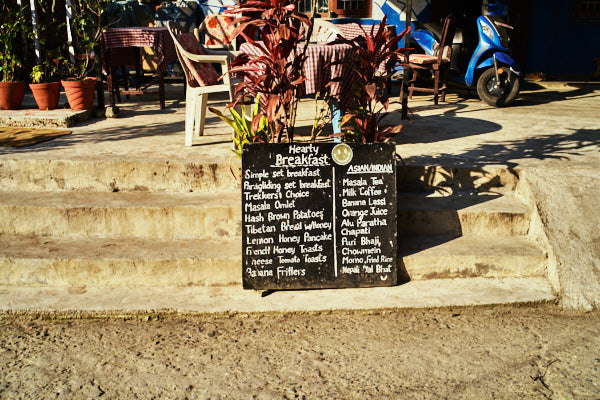 Hearty
Breakfast
Simple set breakfast
Paragliding set breakfast
Trekkers Choice
Masala Omlet
Hash Brown Potatoes
Tibetan Bread w/Honey
Lemon Honey Pancake
French Honey Toasts
Cheese Tomato Toasts
Banana Fritters
ASIAN/INDIAN
Masala Tea
Milk Coffee
Banana Lassi
Orange Juice
Alu Paratha
Chapati
Puri Bhaji
Chowmein
Momo, Fried Rice
Nepali Dal Bhat